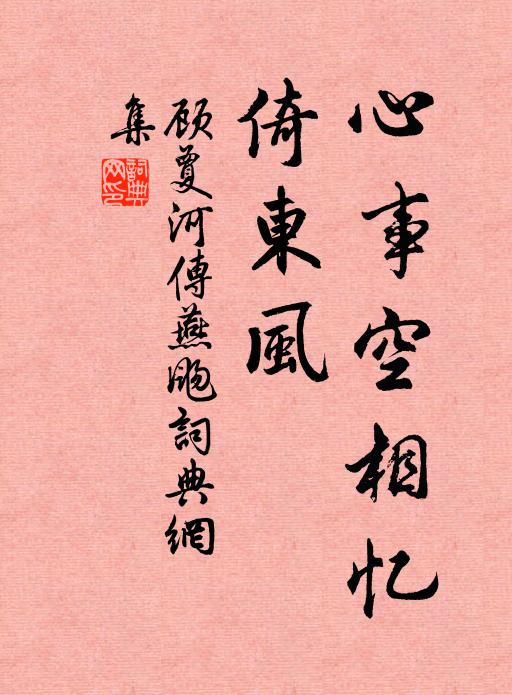 心事空相忆
倚東風
顾夐河傳燕飏詞典網
集
詞典网印